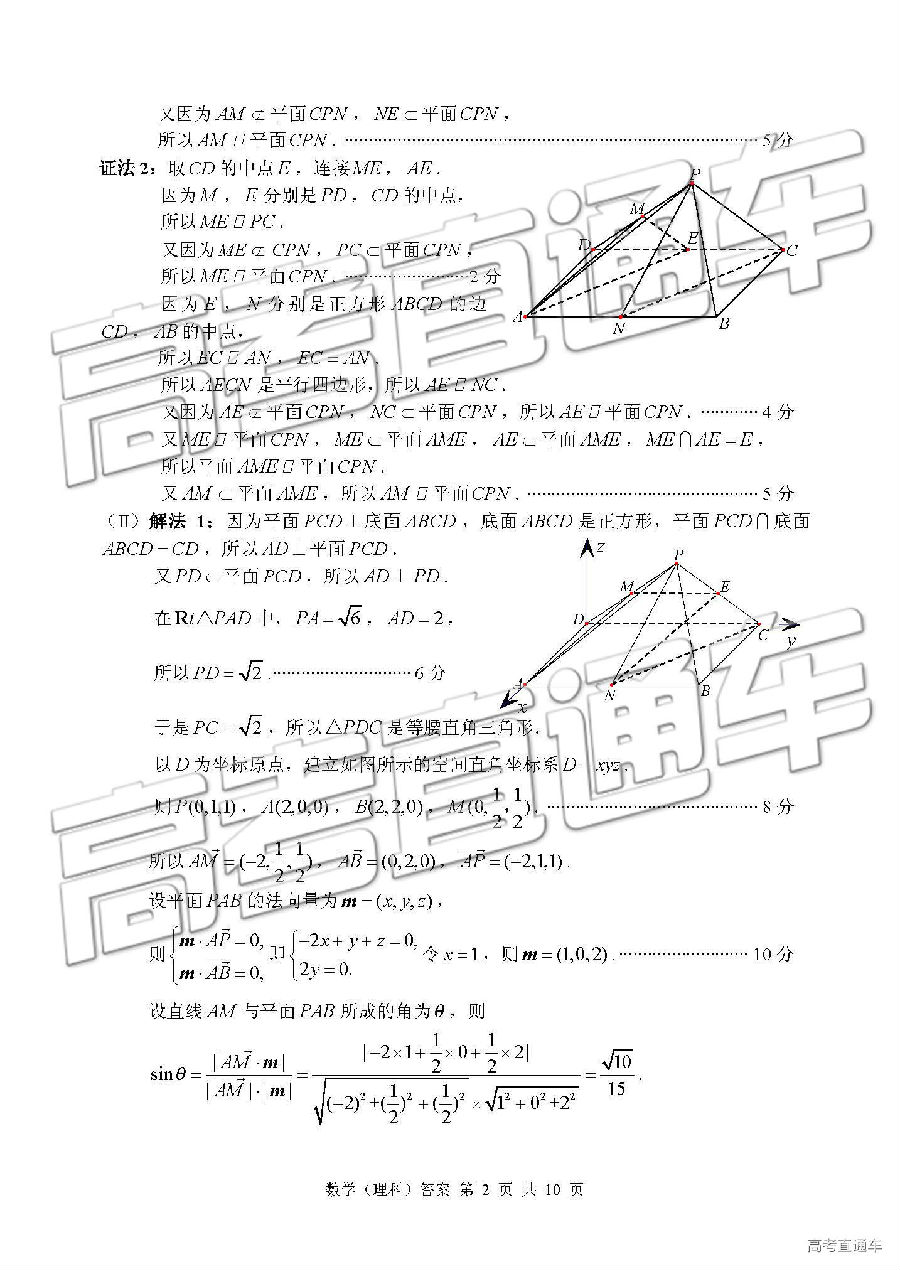 又因为 AM ⊄ 平面 CPN , NE ⊂ 平面 CPN ,
所以 AM ∥ 平面 CPN . ………………………………………………………… 5 分
证法 2：取 CD 的中点 E ，连接 ME ， AE .
因为 M ， E 分别是 PD ， CD 的中点，
所以 ME ∥ PC .
又因为 ME ⊄ CPN ， PC ⊂ 平面 CPN ，
所以 ME ∥ 平面 CPN . ……………………2 分
因 为 E ， N 分 别 是 正 方 形 ABCD 的 边
CD ， AB 的中点，
所以 EC ∥ AN ， EC = AN .
所以 AECN 是平行四边形，所以 AE ∥ NC .
又因为 AE ⊄ 平面 CPN ， NC ⊂ 平面 CPN ，所以 AE ∥ 平面 CPN . ………… 4 分
又 ME ∥ 平面 CPN ， ME ⊂ 平面 AME ， AE ⊂ 平面 AME ， ME ∩ AE = E ，
所以平面 AME ∥ 平面 CPN .
又 AM ⊂ 平面 AME ，所以 AM ∥ 平面 CPN . ………………………………………… 5 分
P
M
D
E
C
A
N
B
（Ⅱ）解法 1：因为平面 PCD ⊥ 底面 ABCD ，底面 ABCD 是正方形，平面 PCD ∩ 底面
ABCD = CD ，所以 AD ⊥ 平面 PCD .
又 PD ⊂ 平面 PCD ，所以 AD ⊥ PD .
在 Rt△PAD 中，PA = √6 ， AD = 2 ，
所以 PD = √2 . ………………………… 6 分
于是 PC = √2 ，所以 △PDC 是等腰直角三角形.
z
P
M
E
D
C
y
A
N
B
x
以 D 为坐标原点，建立如图所示的空间直角坐标系 D − xyz .
则 P(0,1,1) ， A(2,0,0) ， B(2,2,0) ， M(0, 1/2, 1/2) . ……………………………………… 8 分
所以 AM⃗ = (−2, 1/2, 1/2) ， AB⃗ = (0,2,0) ， AP⃗ = (−2,1,1) .
设平面 PAB 的法向量为 m = (x, y, z) ，
则 { m · AP⃗ = 0, m · AB⃗ = 0, 即 { −2x + y + z = 0, 2y = 0. 令 x = 1 ，则 m = (1,0,2) . ……………………… 10 分
设直线 AM 与平面 PAB 所成的角为 θ ，则
sin θ = |AM⃗ · m| / |AM⃗| · |m| = |−2×1 + 1/2×0 + 1/2×2| / √((−2)² + (1/2)² + (1/2)²) × √(1² + 0² + 2²) = √10 / 15 .
数学（理科）答案 第 2 页 共 10 页
高考直通车
高考直通车
高考直通车